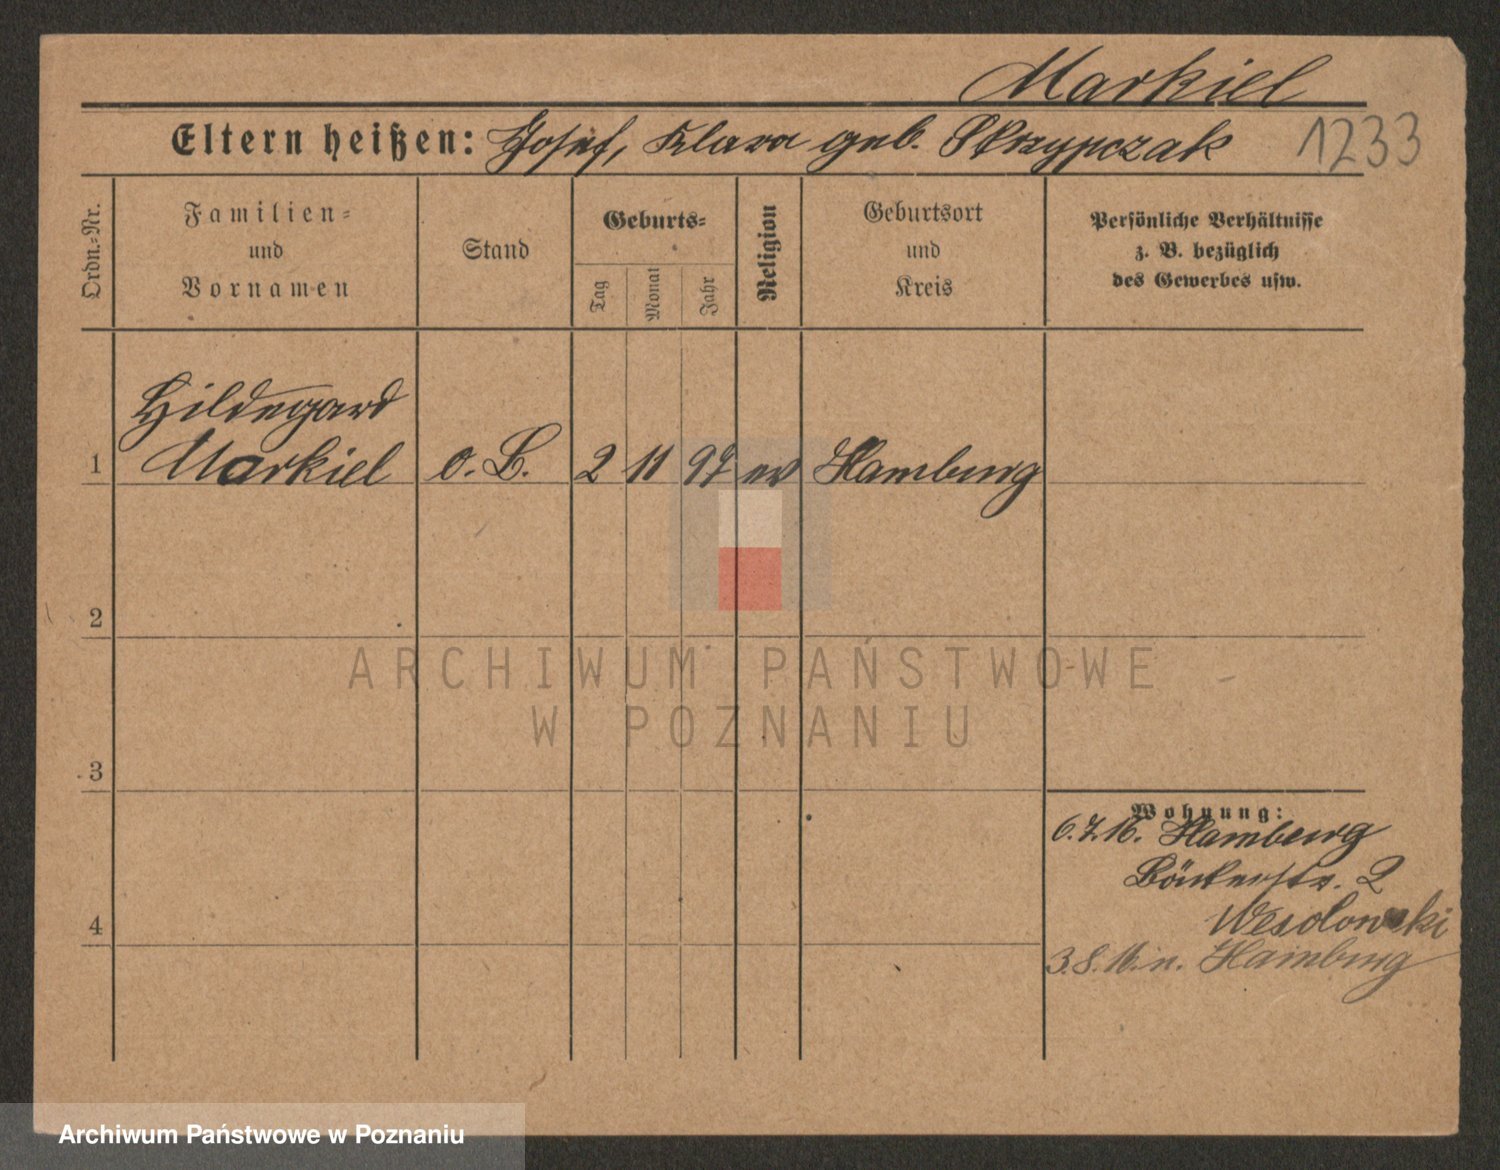 Markiel
Eltern heißen: Josef, Klara geb. Skrzypczak 1233
Ordn.=Nr.
Familien=
und
Vornamen
Stand
Geburts=
Tag
Monat
Jahr
Religion
Geburtsort
und
Kreis
Persönliche Verhältnisse
z. B. bezüglich
des Gewerbes usw.
Hildegard
1 Markiel o. B. 2 11 97 ev Hamburg
2
ARCHIWUM PAŃSTWOWE
W POZNANIU
3
Wohnung:
6.7.16. Hamburg
2
Wesolowski
4
3.8.16. n. Hamburg
Archiwum Państwowe w Poznaniu